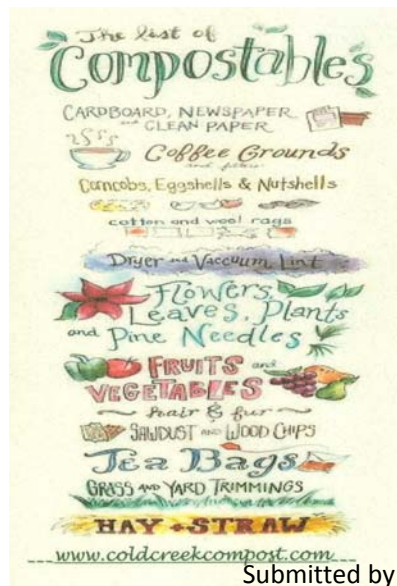 The list of
Compostables
CARDBOARD, NEWSPAPER
and CLEAN PAPER
Coffee Grounds
and filters
Corncobs, Eggshells & Nutshells
cotton and wool rags
Dryer and Vaccuum Lint
Flowers,
Leaves, Plants
and Pine Needles
FRUITS and
VEGETABLES
~ hair & fur ~
SAWDUST AND WOOD CHIPS
Tea Bags
GRASS AND YARD TRIMMINGS
HAY + STRAW
www.coldcreekcompost.com
Submitted by